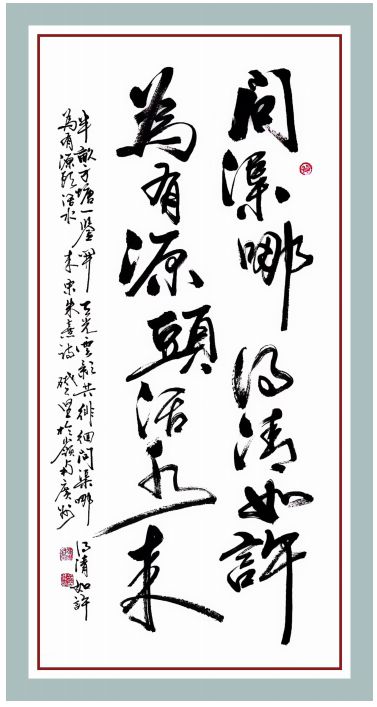 問渠哪得清如許
為有源頭活水來
半畝方塘一鑒開天光雲影共徘徊問渠哪得清如許
為有源頭活水來宋朱熹詩 於嶺南廣州